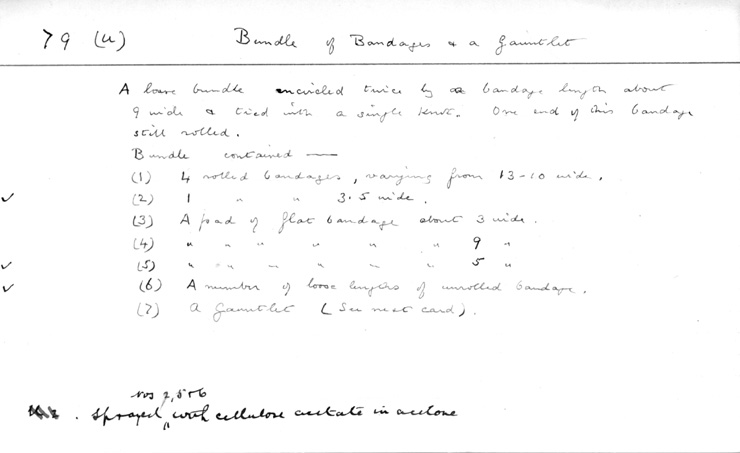 79 (u) Bundle of Bandages & a Gauntlet
A loose bundle encircled twice by a bandage length about
9 wide & tied with a single knot. One end of this bandage
still rolled.
Bundle contained —
(1) 4 rolled bandages, varying from 13-10 wide.
✓ (2) 1 " " 3.5 wide.
(3) A pad of flat bandage about 3 wide.
(4) " " " " " " 9 "
✓ (5) " " " " " " 5 "
✓ (6) A number of loose lengths of unrolled bandage.
(7) A Gauntlet (See next card).
nos 2, 5 & 6
Sprayed with cellulose acetate in acetone